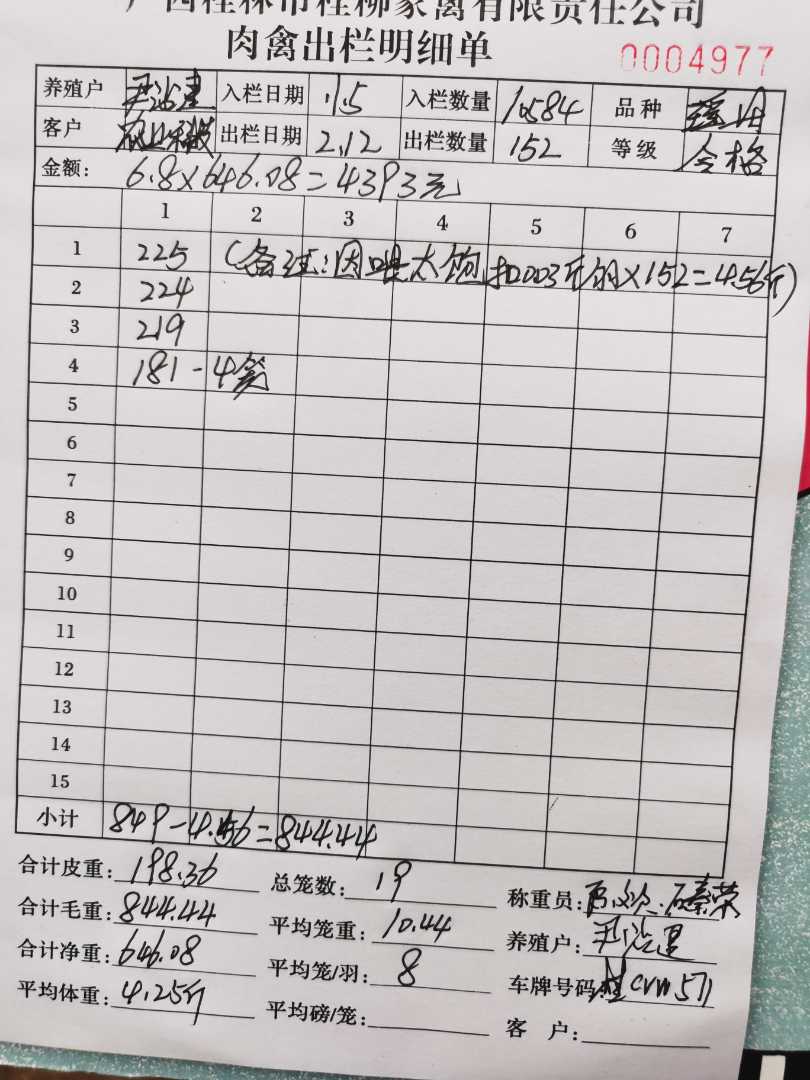 广西桂林市桂柳家禽有限责任公司
肉禽出栏明细单
0004977
养殖户 入栏日期 1.5 入栏数量 10584 品种
客户 农业科技 出栏日期 2.12 出栏数量 152 等级 合格
金额: 6.8×646.08=4393元
1 2 3 4 5 6 7
1 225 (备注:因喂太饱扣0.03斤/羽×152=4.56斤)
2 224
3 219
4 181-4笼
5
6
7
8
9
10
11
12
13
14
15
小计 849-4.56=844.44
合计皮重: 198.36 总笼数: 19 称重员:
合计毛重: 844.44 平均笼重: 10.44 养殖户:
合计净重: 646.08 平均笼/羽: 8 车牌号码: 桂CVW571
平均体重: 4.25斤 平均磅/笼: 客 户: